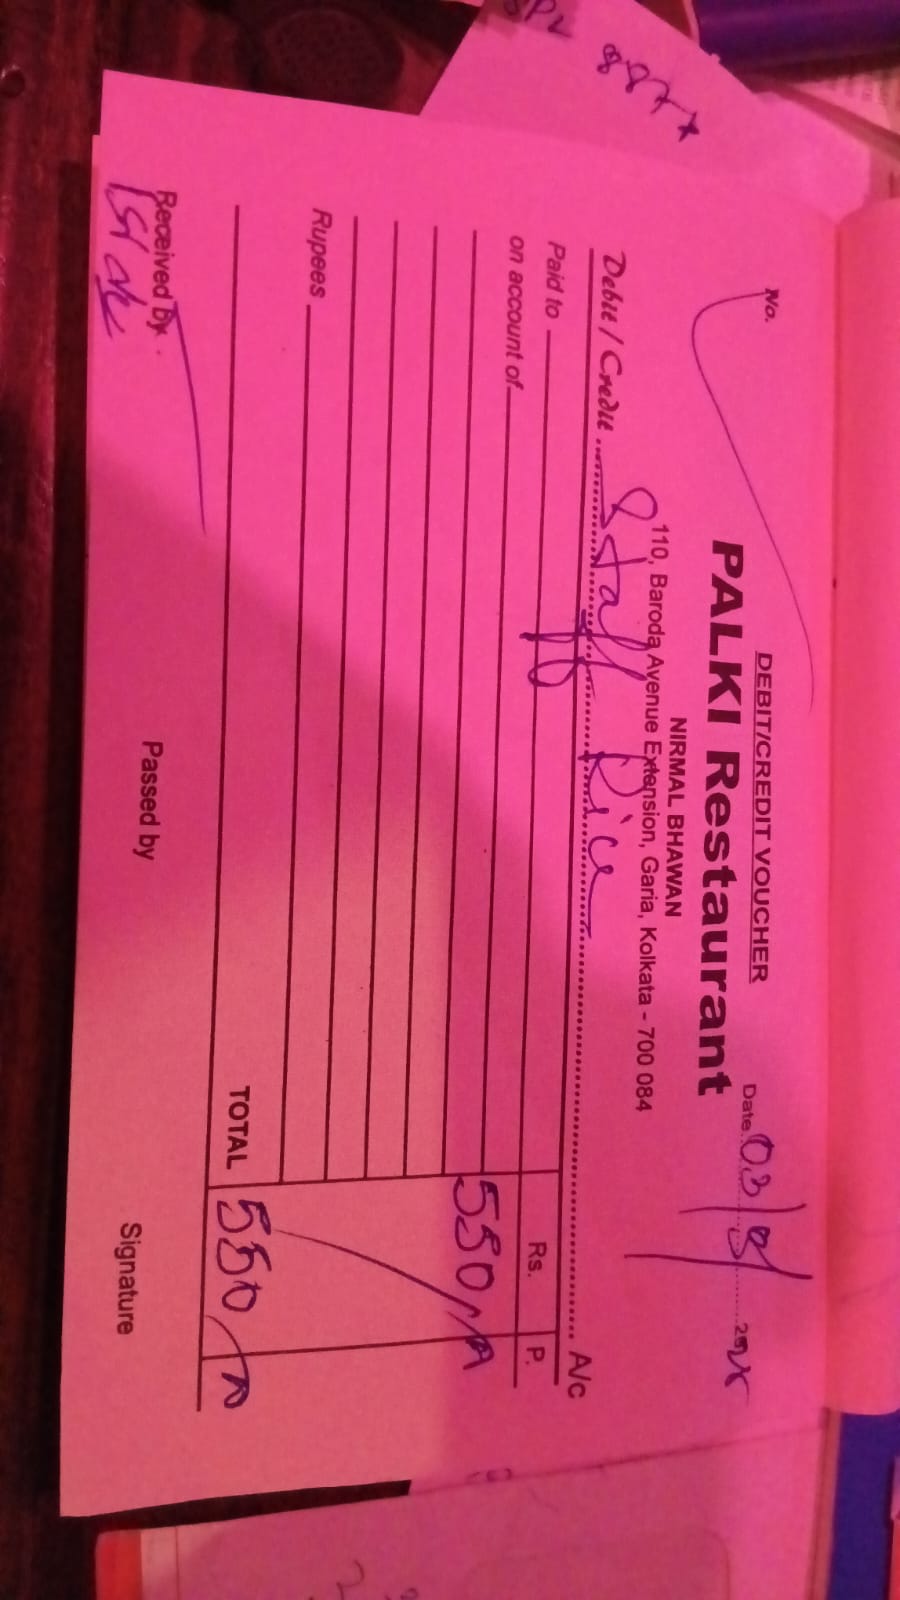 DEBIT/CREDIT VOUCHER
No.
Date 03/
PALKI Restaurant
NIRMAL BHAWAN
110, Baroda Avenue Extension, Garia, Kolkata - 700 084
Debit / Credit Staff Rice A/c
Paid to Rs. P.
on account of
550/
Rupees
TOTAL 550/
Received by
Passed by
Signature